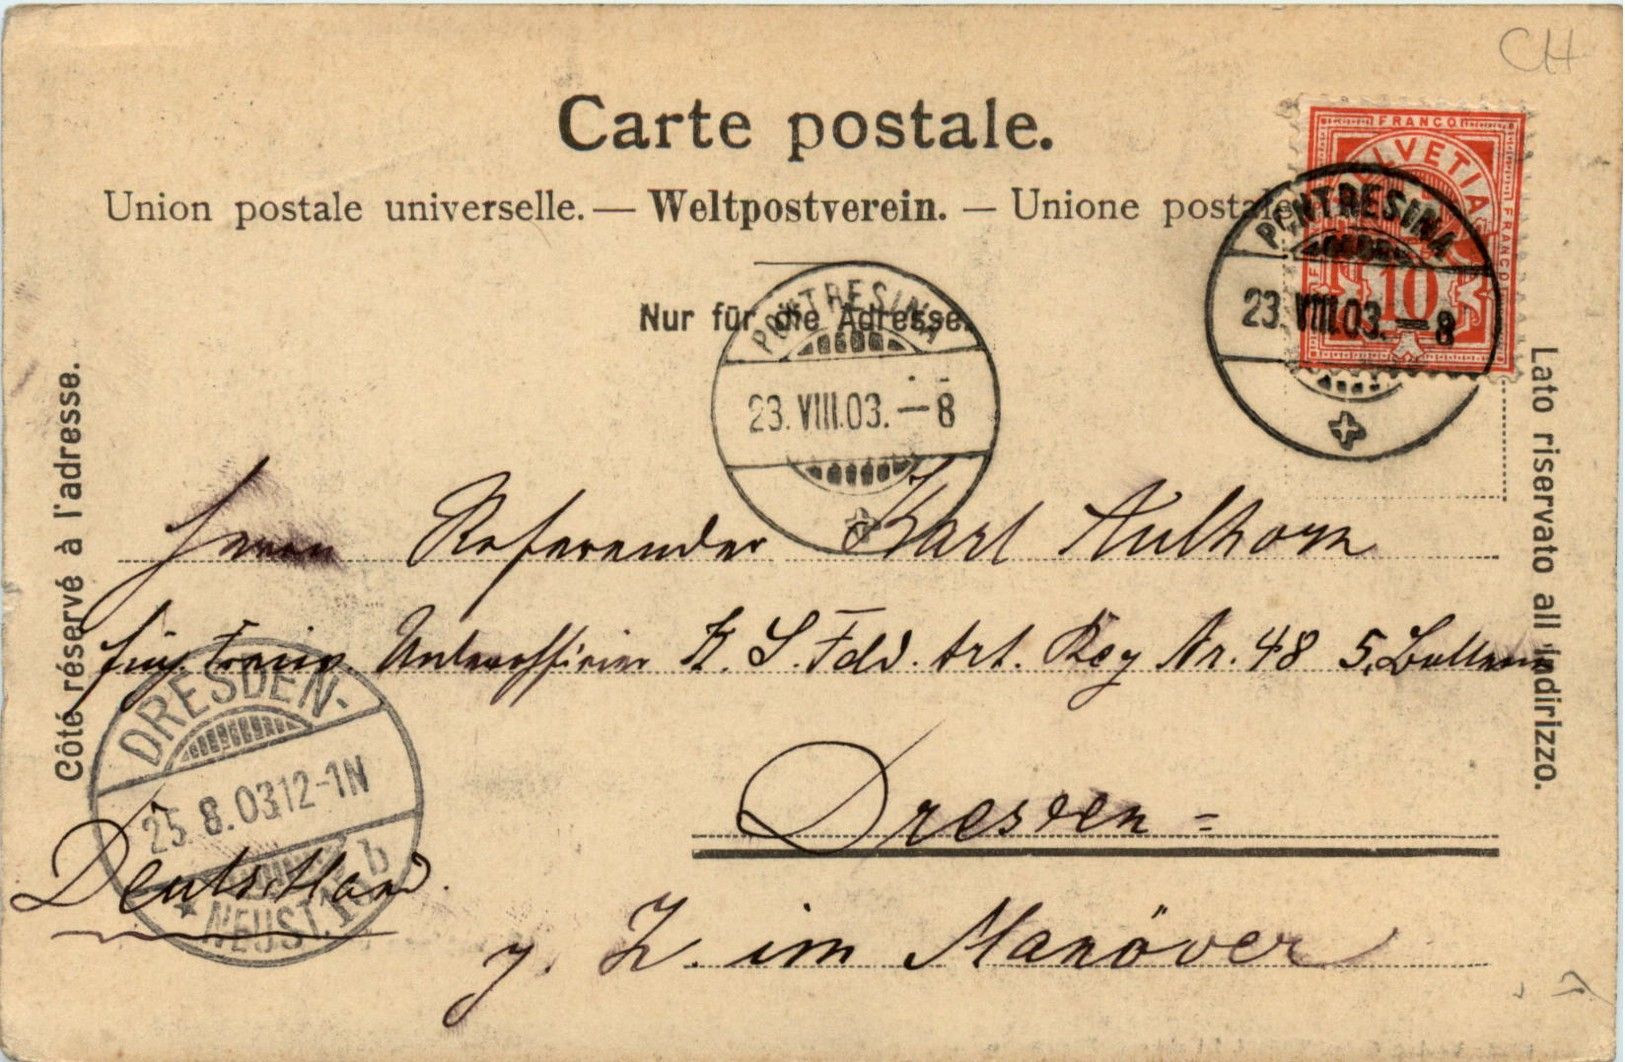 CH
Carte postale.
Union postale universelle. — Weltpostverein. — Unione postale
FRANCO
HELVETIA
FRANCO
10
PONTRESINA
23.VIII.03.–8
Nur für die Adresse.
PONTRESINA
23.VIII.03.–8
Côté réservé à l'adresse.
Lato riservato all'indirizzo.
Herrn Referendar Karl Aulhorn
Einj. Freiw. Unteroffizier K. S. Feld. Art. Reg Nr. 48 5. Batterie
DRESDEN-
25.8.03 12-1N
NEUST. 15 b
Dresden =
Deutschland.
z. Z. im Manöver